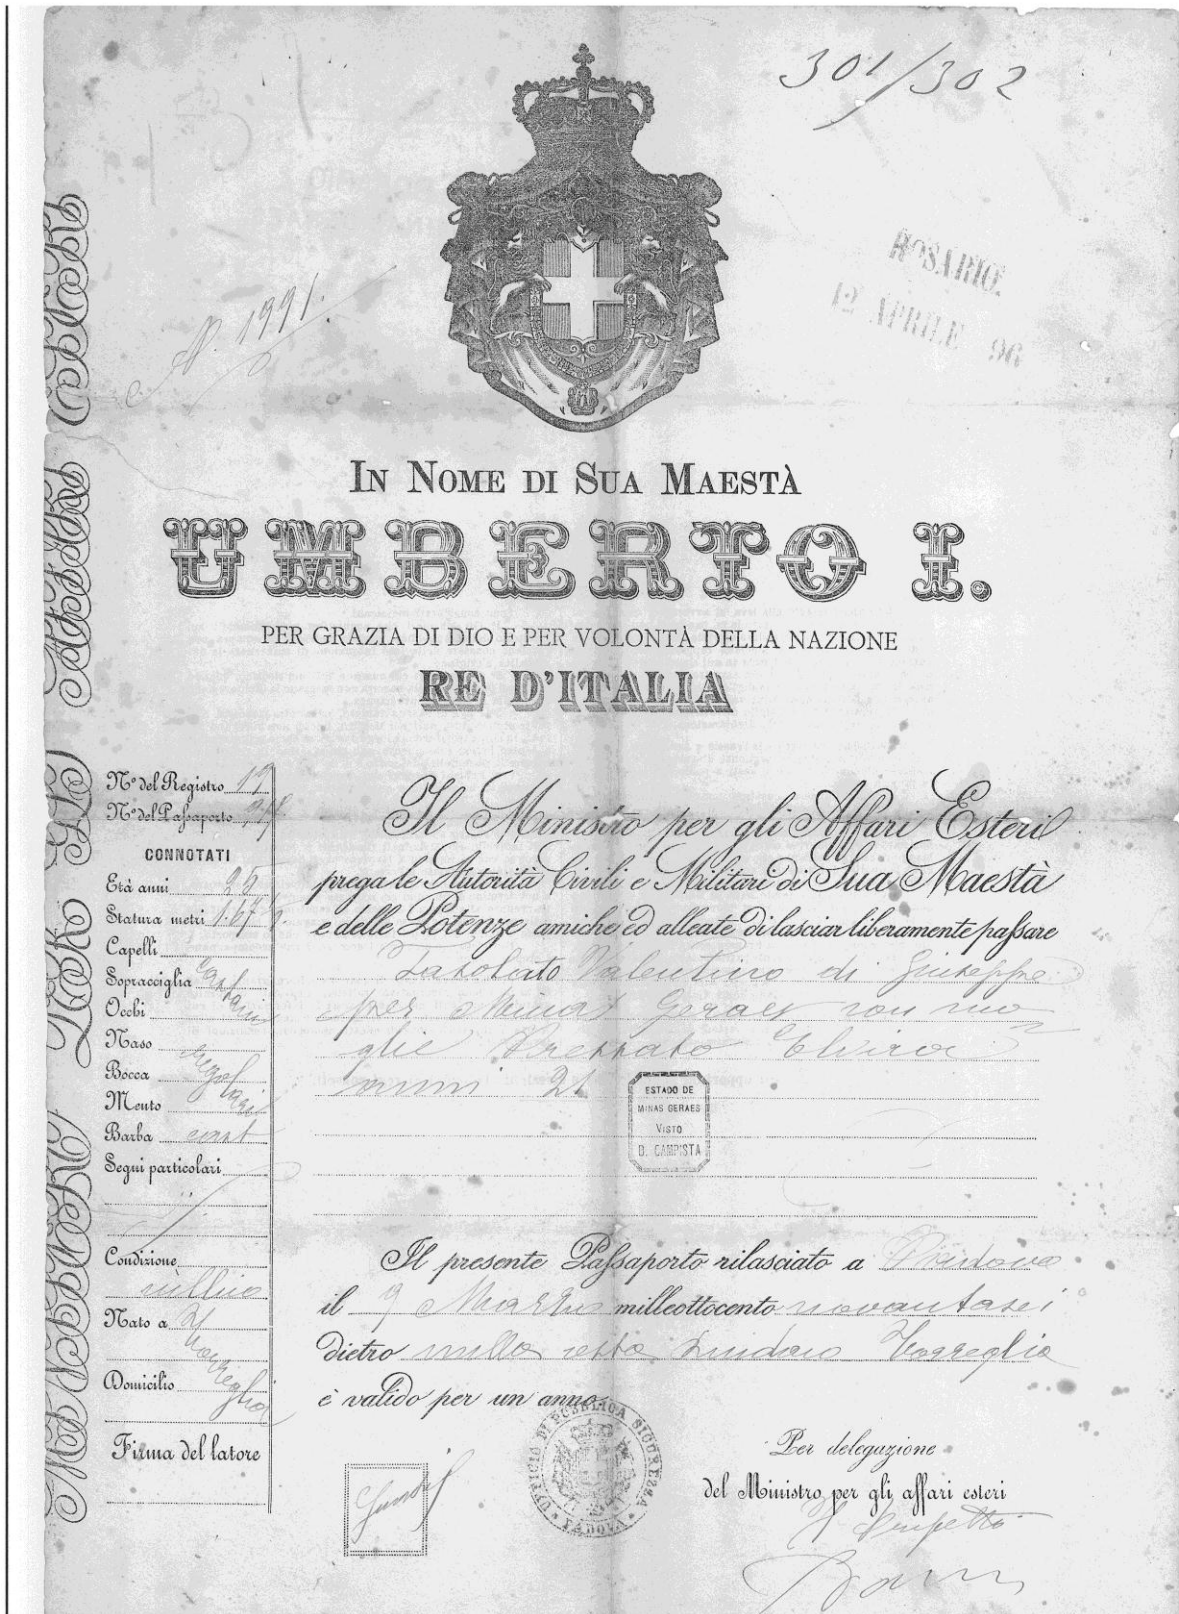 301/302
N. 1991.
ROSARIO.
12 APRILE 96
IN NOME DI SUA MAESTÀ
UMBERTO I.
PER GRAZIA DI DIO E PER VOLONTÀ DELLA NAZIONE
RE D'ITALIA
Nº del Registro 19
Nº del Passaporto
CONNOTATI
Età anni 25
Statura metri 1.67
Capelli
Sopracciglia castani
Occhi
Naso
Bocca regolari
Mento
Barba cast
Segni particolari
Condizione
villico
Nato a Torreglia
Domicilio
Firma del latore
Il Ministro per gli Affari Esteri
prega le Autorità Civili e Militari di Sua Maestà
e delle Potenze amiche ed alleate di lasciar liberamente passare
Valentino di Giuseppe
per Minas Geraes con mo
glie Elvira
anni 21
ESTADO DE
MINAS GERAES
VISTO
D. CAMPISTA
Il presente Passaporto rilasciato a Padova
il 9 Marzo milleottocento novantasei
dietro nulla osta Sindaco Torreglia
è valido per un anno.
UFFICIO DI PUBBLICA SICUREZZA
PADOVA
Per delegazione
del Ministro per gli affari esteri